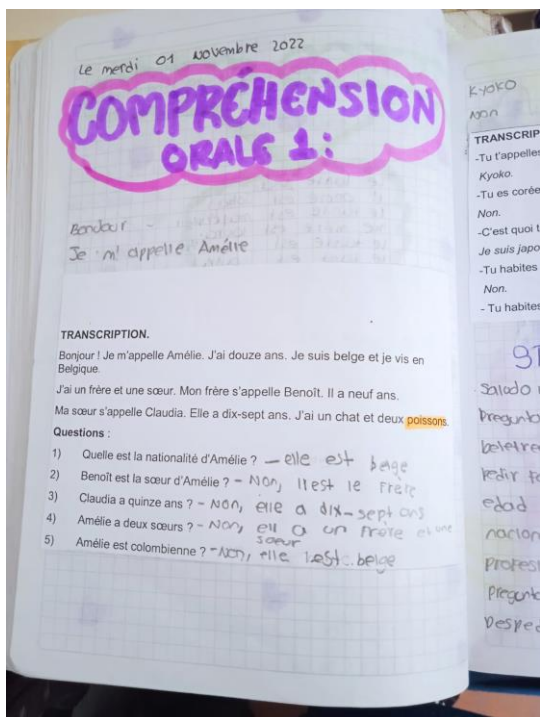 Le merdi 01 Novembre 2022
COMPRÉHENSION
ORALE 1:
Bonjour -
Je m'appelle Amélie
TRANSCRIPTION.
Bonjour ! Je m'appelle Amélie. J'ai douze ans. Je suis belge et je vis en
Belgique.
J'ai un frère et une sœur. Mon frère s'appelle Benoît. Il a neuf ans.
Ma sœur s'appelle Claudia. Elle a dix-sept ans. J'ai un chat et deux poissons.
Questions :
1) Quelle est la nationalité d'Amélie ? - elle est belge
2) Benoît est la sœur d'Amélie ? - Non, il est le frère
3) Claudia a quinze ans ? - Non, elle a dix-sept ans
4) Amélie a deux sœurs ? - Non, ell a un frère et une
sœur
5) Amélie est colombienne ? - Non, elle est belge
Kyoko
Non
TRANSCRIP
-Tu t'appelles
Kyoko.
-Tu es corée
Non.
-C'est quoi t
Je suis japo
-Tu habites
Non.
- Tu habites
Salodo
Pregunta
beletre
Pedir
edad
nacion
Profes
Pregunta
Desped